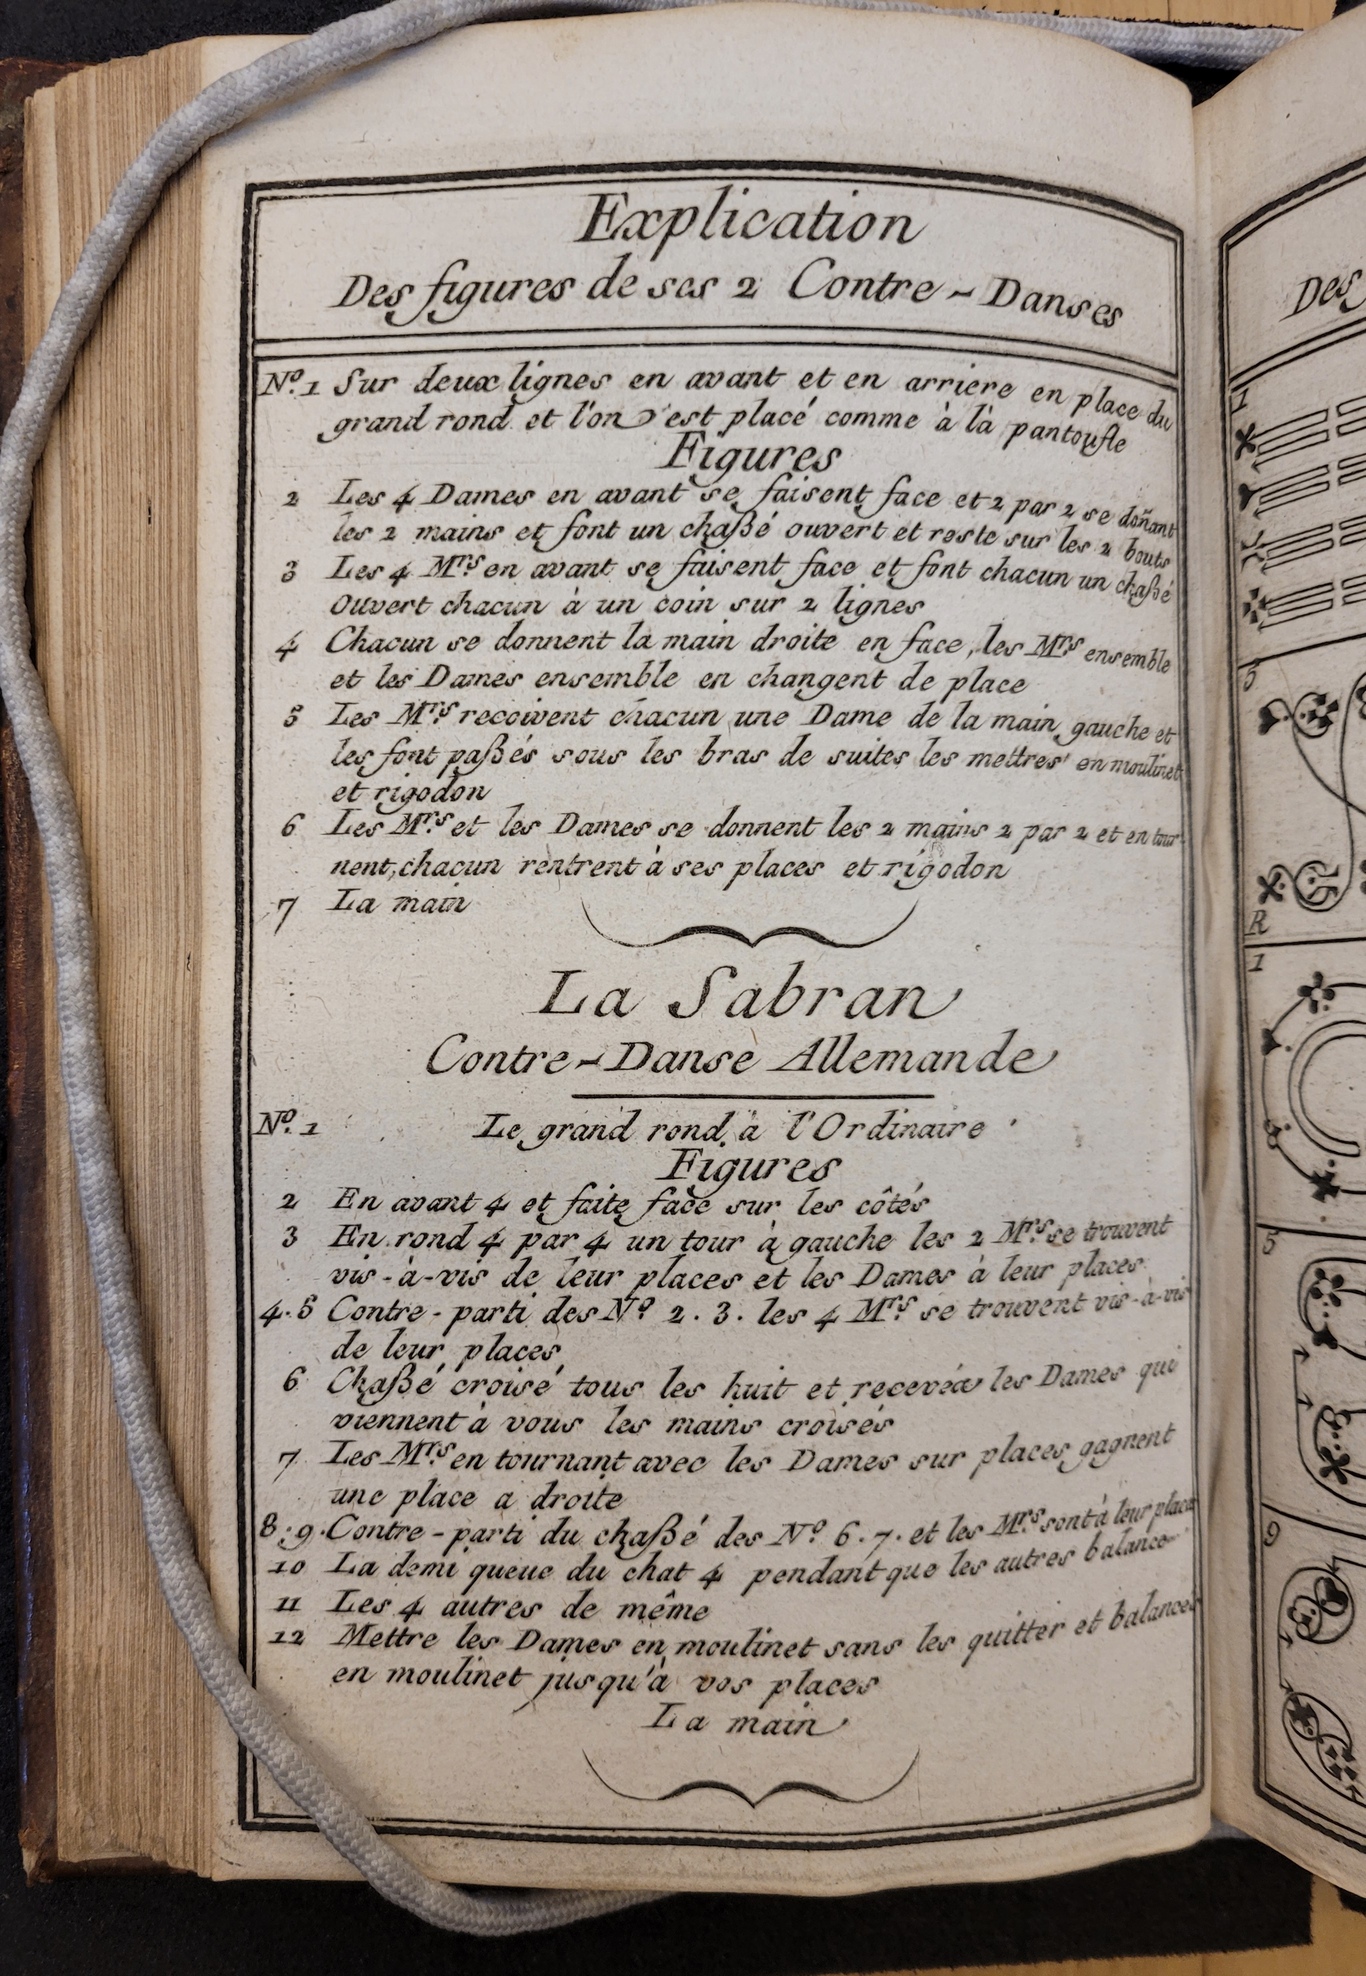 Explication
Des figures de ses 2 Contre-Danses
Nº. 1 Sur deux lignes en avant et en arriere en place du
grand rond et l'on s'est placé comme à là pantoufle
Figures
2 Les 4 Dames en avant se faisent face et 2 par 2 se doñant
les 2 mains et font un chaßé ouvert et reste sur les 2 bouts
3 Les 4 Mrs. en avant se faisent face et font chacun un chaßé
ouvert chacun à un coin sur 2 lignes
4 Chacun se donnent la main droite en face, les Mrs. ensemble
et les Dames ensemble en changent de place
5 Les Mrs. recoivent chacun une Dame de la main gauche et
les font paßés sous les bras de suites les mettres en moulinet
et rigodon
6 Les Mrs. et les Dames se donnent les 2 mains 2 par 2 et en tour-
nent, chacun rentrent à ses places et rigodon
7 La main
La Sabran
Contre-Danse Allemande
Nº. 1 Le grand rond à l'Ordinaire
Figures
2 En avant 4 et faite face sur les côtés
3 En rond 4 par 4 un tour à gauche les 2 Mrs. se trouvent
vis-à-vis de leur places et les Dames à leur places
4.5 Contre-parti des Nº 2.3. les 4 Mrs. se trouvent vis-à-vis
de leur places
6 Chaßé croisé tous les huit et recevéz les Dames qui
viennent à vous les mains croisés
7 Les Mrs. en tournant avec les Dames sur places gagnent
une place a droite
8.9. Contre-parti du chaßé des Nº 6.7. et les Mrs. sont à leur place
10 La demi queue du chat 4 pendant que les autres balance
11 Les 4 autres de même
12 Mettre les Dames en moulinet sans les quitter et balancés
en moulinet jusqu'à vos places
La main
Des
1
5
R
1
5
9